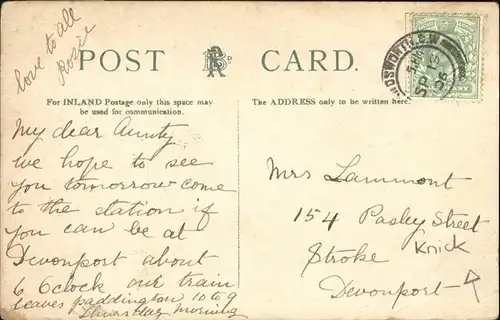 love to all
Rosie
POST CARD.
For INLAND Postage only this space may
be used for communication.
The ADDRESS only to be written here.
My dear Aunty
we hope to see
you tomorrow come
to the station if
you can be at
Devonport about
6 Oclock our train
leaves paddington 10 to 9
Thursday morning
Mrs Lammont
154 Pasley Street
Knick
Stroke
Devonport
WANDSWORTH. S.W
SP 15